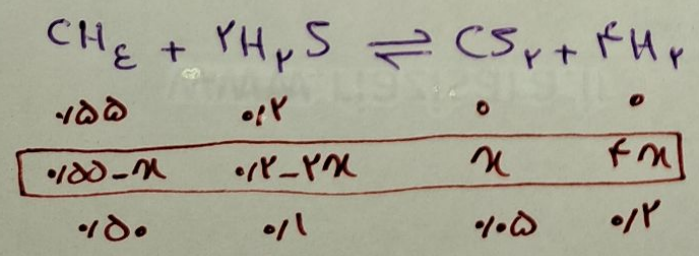 CH۴ + ۲H۲S ⇌ CS۲ + ۴H۲
۰/۵۵ ۰/۲ ۰ ۰
۰/۵۵-x ۰/۲-۲x x ۴x
۰/۵۰ ۰/۱ ۰/۰۵ ۰/۲